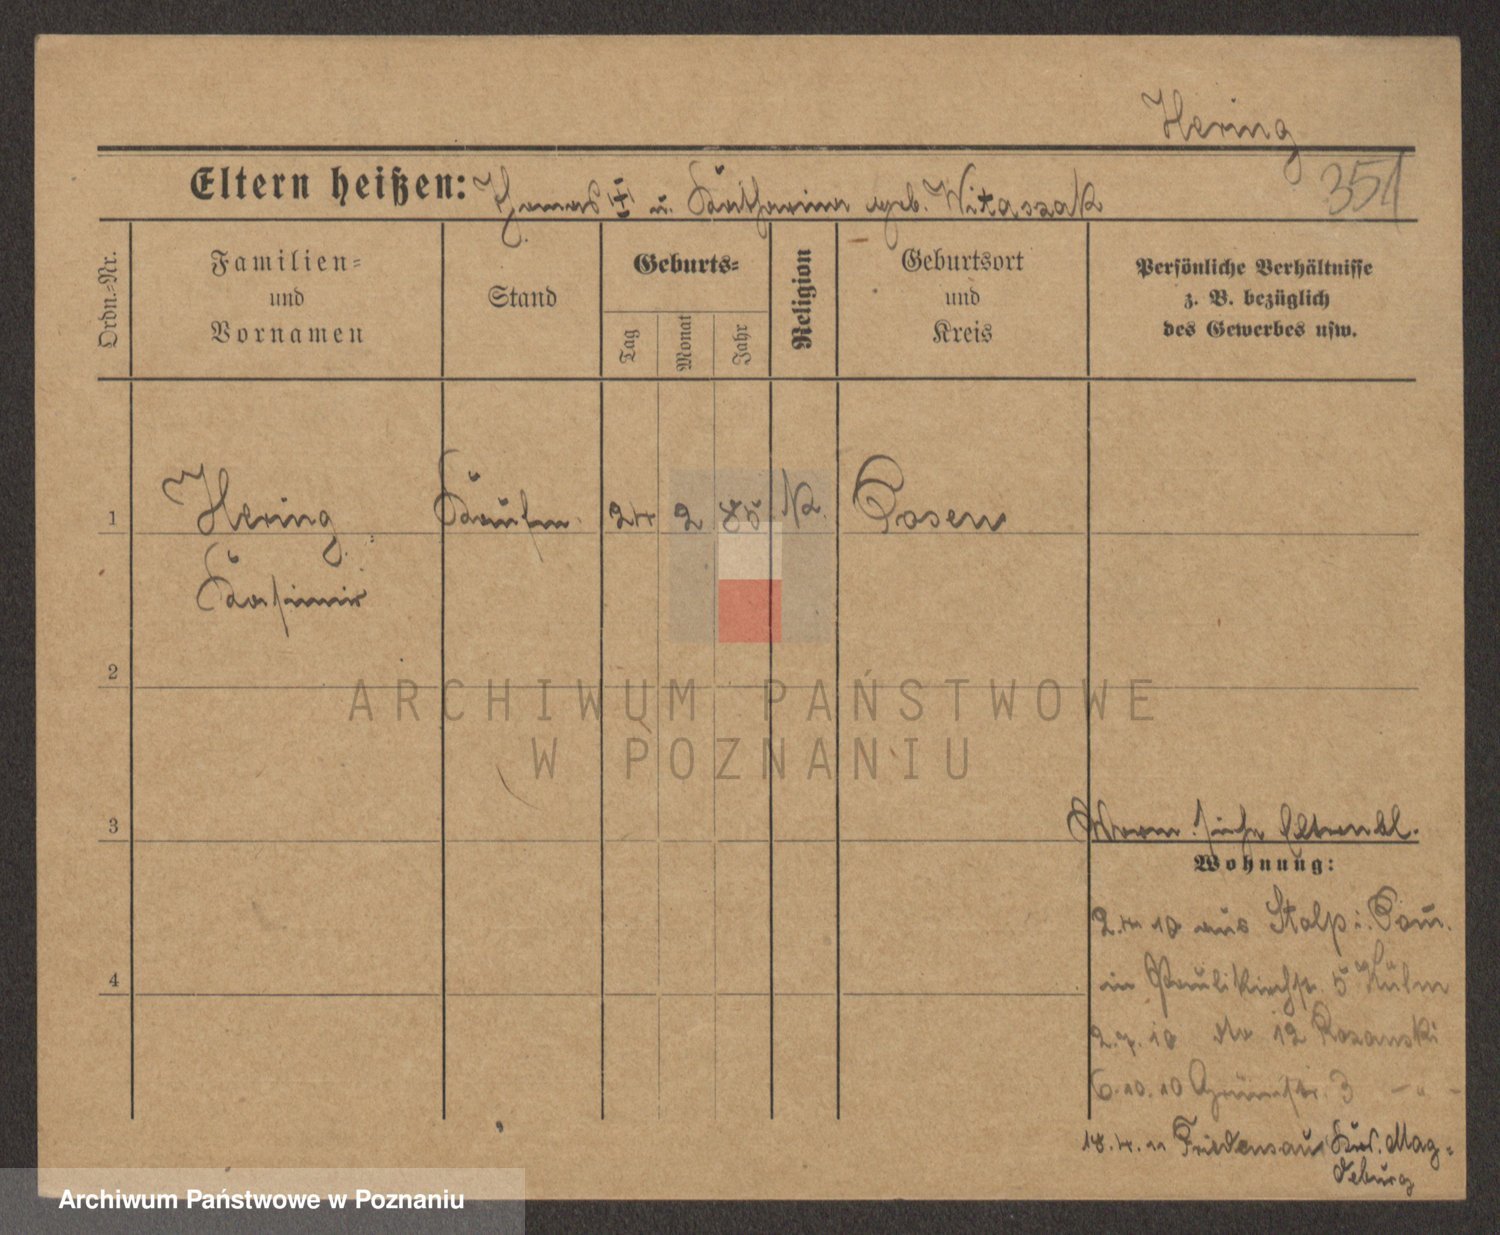 Hering
351
Eltern heißen: Thomas u. Katharina geb. Witaszak
Ordn.=Nr.
Familien=
und
Vornamen
Stand
Geburts=
Tag
Monat
Jahr
Religion
Geburtsort
und
Kreis
Persönliche Verhältnisse
z. B. bezüglich
des Gewerbes usw.
1
Hering
Kaufm.
24
2
85
K.
Posen
Kasimir
2
ARCHIWUM PAŃSTWOWE
W POZNANIU
3
siehe Elternbl.
Wohnung:
2.4.10 aus Stolp i. Pom.
in Paulikirchstr. 5 Kulm
2.7.10 do 12 Rozanski
6.10.10 3 - " -
18.4.11 Friedensau Krs. Mag=
deburg
4
Archiwum Państwowe w Poznaniu